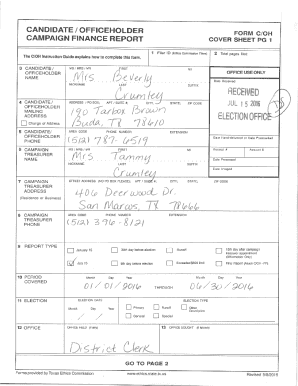 CANDIDATE / OFFICEHOLDER
CAMPAIGN FINANCE REPORT
FORM C/OH
COVER SHEET PG 1
The C/OH Instruction Guide explains how to complete this form.
1 Filer ID (Ethics Commission Filers)
2 Total pages filed:
3 CANDIDATE / OFFICEHOLDER NAME
MS / MRS / MR FIRST MI
Mrs Beverly
NICKNAME LAST SUFFIX
Crumley
OFFICE USE ONLY
Date Received
RECEIVED
JUL 15 2016
ELECTION OFFICE
4 CANDIDATE / OFFICEHOLDER MAILING ADDRESS
Change of Address
ADDRESS / PO BOX; APT / SUITE #; CITY; STATE; ZIP CODE
190 Tarbox Brown
Buda, TX 78610
5 CANDIDATE / OFFICEHOLDER PHONE
AREA CODE PHONE NUMBER EXTENSION
(512) 787-6519
Date Hand-delivered or Date Postmarked
6 CAMPAIGN TREASURER NAME
MS / MRS / MR FIRST MI
Mrs Tammy
NICKNAME LAST SUFFIX
Crumley
Receipt # Amount $
Date Processed
Date Imaged
7 CAMPAIGN TREASURER ADDRESS
(Residence or Business)
STREET ADDRESS (NO PO BOX PLEASE); APT / SUITE #; CITY; STATE; ZIP CODE
406 Deerwood Dr.
San Marcos, TX 78666
8 CAMPAIGN TREASURER PHONE
AREA CODE PHONE NUMBER EXTENSION
(512) 396-8121
9 REPORT TYPE
January 15
30th day before election
Runoff
15th day after campaign treasurer appointment (Officeholder Only)
July 15
8th day before election
Exceeded $500 limit
Final Report (Attach C/OH - FR)
10 PERIOD COVERED
Month Day Year
01/01/2016
THROUGH
Month Day Year
06/30/2016
11 ELECTION
ELECTION DATE
Month Day Year
ELECTION TYPE
Primary
Runoff
Other Description
General
Special
12 OFFICE
OFFICE HELD (if any)
District Clerk
13 OFFICE SOUGHT (if known)
GO TO PAGE 2
Forms provided by Texas Ethics Commission
www.ethics.state.tx.us